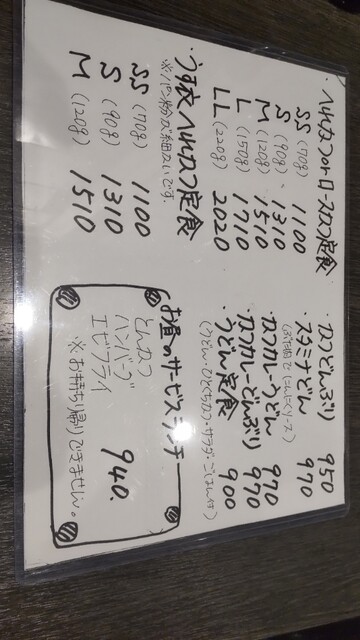 ・ヘレカツorロースカツ定食
SS (70g) 1100
S (90g) 1310
M (120g) 1510
L (150g) 1710
LL (220g) 2020
・うす衣 ヘレカツ定食
※パン粉が細かいです。
SS (70g) 1100
S (90g) 1310
M (120g) 1510
・カツどんぶり 950
・スタミナどん 970
(ぶた肉で にんにくソース)
・カツカレーうどん 970
・カツカレーどんぶり 970
・うどん定食 900
(うどん・ひとくちカツ・サラダ・ごはん付)
お昼のサービスランチ
とんかつ
ハンバーグ
エビフライ
940.
※お持ち帰りできません。